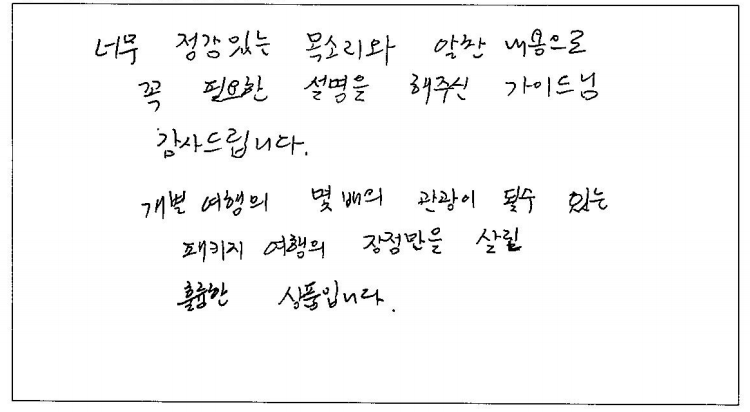 너무 정감있는 목소리와 알찬 내용으로
꼭 필요한 설명을 해주신 가이드님
감사드립니다.
개별 여행의 몇 배의 관광이 될수 있는
패키지 여행의 장점만을 살릴
훌륭한 상품입니다.